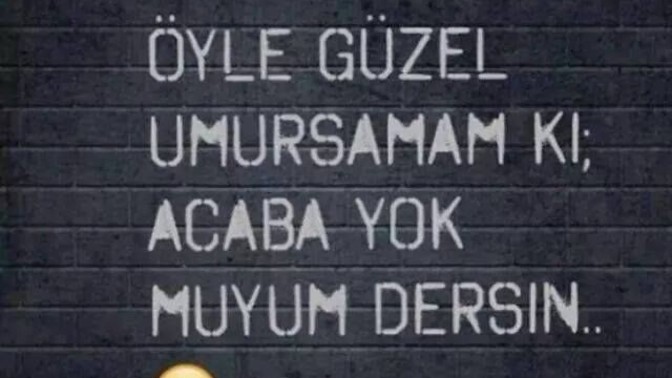 ÖYLE GÜZEL
UMURSAMAM KI;
ACABA YOK
MUYUM DERSIN..